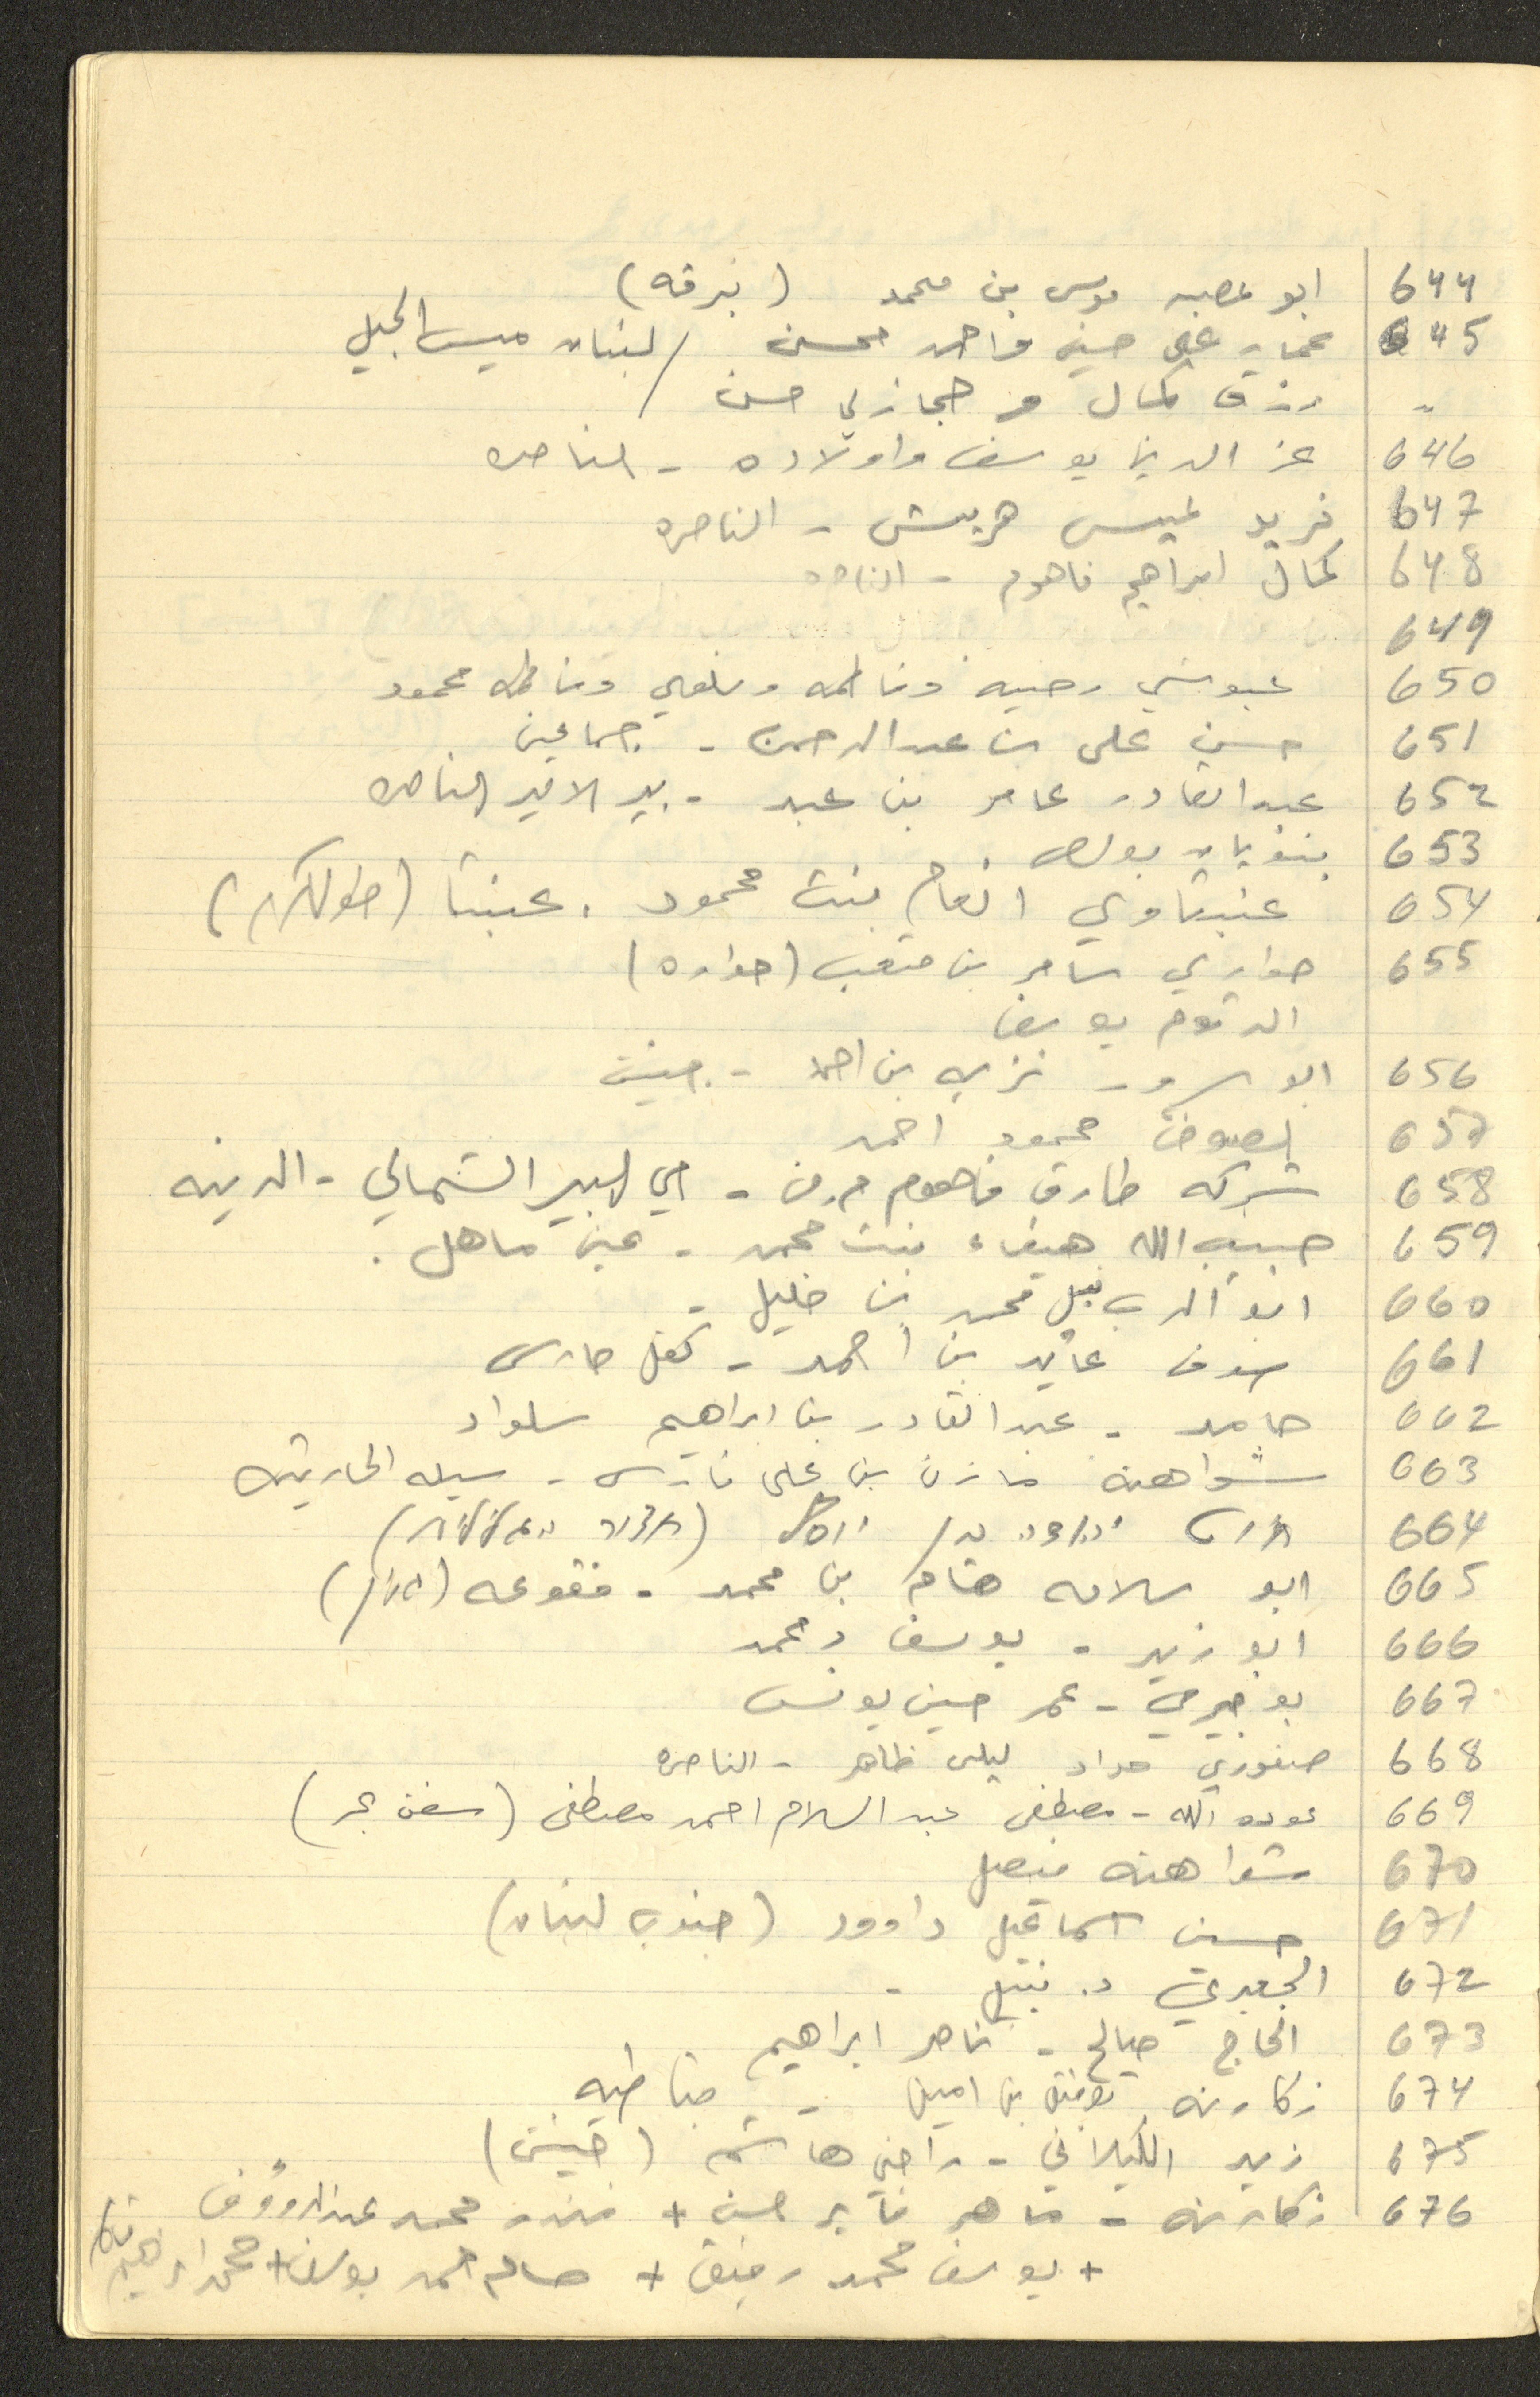 644 ابو عصبه موسى بن محمد (برقه)
645 عمار علي حسين واحمد محسن / لبنان ميس الجبل
" رزق كمال و حجازي حسن /
646 عز الدين يوسف واولاده - الناصره
647 فريد عيسى هريش - الناصره
648 كمال ابراهيم فاهوم - الناصره
649
650 عبوشي رضيه وفاطمه و وفاطمه محمود
651 حسين علي بن عبد الرحمن - جماعين
652 عبد القادر عامر بن عبد - بير الامير الناصره
653 بولص
654 عنبتاوي انعام بنت محمود . عنبتا (طولكرم)
655 حواري سامر بن متعب (حواره)
يوسف
656 ابو سرور نزيه بن احمد - جنين
657 محمود احمد
658 شركه طارق فاهوم م.ض - حي البير الشمالي - المدينه
659 حبيب الله هيفاء بنت محمد - عين ماهل .
660 ابو الرب نبيل محمد بن خليل -
661 عايد بن احمد - كفل حارس
662 حامد - عبد القادر بن ابراهيم سلواد
663 شواهنه مازن بن علي فارس - سيله الحارثيه
664
665 ابو سلامه هشام بن محمد - فقوعه
666 ابو زيد - يوسف و محمد
667 بوجيرمي - عمر حسين يونس
668 صفوري مراد ليلى ظاهر - الناصره
669 عوده الله - مصطفى عبد السلام احمد مصطفى
670 شواهنه فيصل
671 حسين اسماعيل داوود (جنوب لبنان)
672 الجعبري د. نبيل -
673 الحاج صالح - ناصر ابراهيم
674 زكارنه توفيق بن امين - قباطيه
675 زيد الكيلاني - راضي هاشم (جنين)
676 زكارنه - ماهر فايز حسين + منذر محمد عبد الرؤوف
+ يوسف محمد رفيق + سالم احمد يوسف + محمد ابراهيم